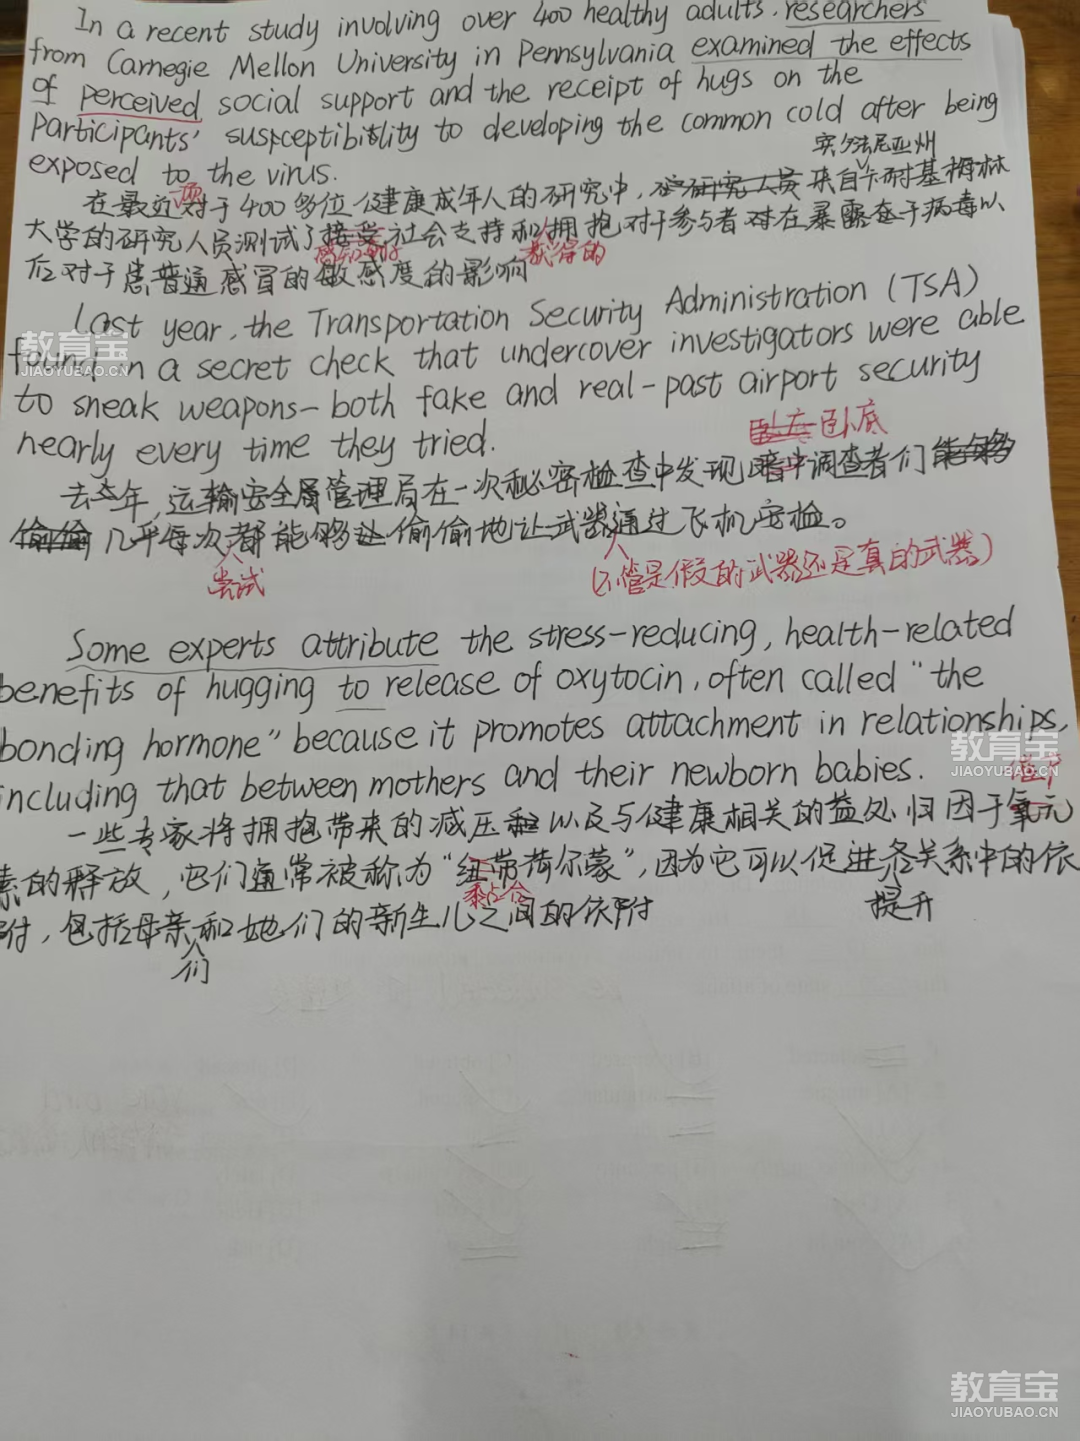 In a recent study involving over 400 healthy adults, researchers
from Carnegie Mellon University in Pennsylvania examined the effects
of perceived social support and the receipt of hugs on the
participants' susceptibility to developing the common cold after being
exposed to the virus.
宾夕法尼亚州
在最近对于400多位健康成年人的研究中，研究人员来自卡耐基梅林
项
大学的研究人员测试了接受社会支持和拥抱对于参与者对在暴露在于病毒以
感知到的 获得的
后对于患普通感冒的敏感度的影响
Last year, the Transportation Security Administration (TSA)
found in a secret check that undercover investigators were able
to sneak weapons-both fake and real-past airport security
nearly every time they tried.
卧底
去年，运输安全局管理局在一次秘密检查中发现暗中调查者们能够
偷偷几乎每次都能够让偷偷地让武器通过飞机安检。
尝试
(不管是假的武器还是真的武器)
Some experts attribute the stress-reducing, health-related
benefits of hugging to release of oxytocin, often called "the
bonding hormone" because it promotes attachment in relationships,
including that between mothers and their newborn babies.
一些专家将拥抱带来的减压和以及与健康相关的益处归因于氧元
素的释放，它们通常被称为"纽带荷尔蒙"，因为它可以促进各关系中的依
黏合
提升
附，包括母亲和她们的新生儿之间的依附
们
教育宝
JIAOYUBAO.CN
教育宝
JIAOYUBAO.CN
教育宝
JIAOYUBAO.CN